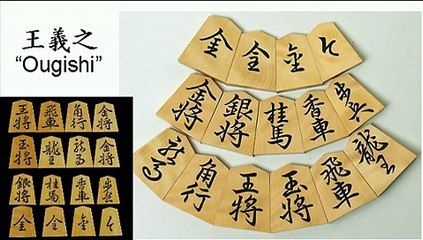 王義之
“Ougishi”
金 全 金 と
金将 銀将 桂馬 香車 歩兵
龍馬 角行 王将 玉将 飛車 龍王
王将 飛車 角行 金将
玉将 龍王 龍馬 金将
銀将 桂馬 香車 歩兵
金 全 金 と